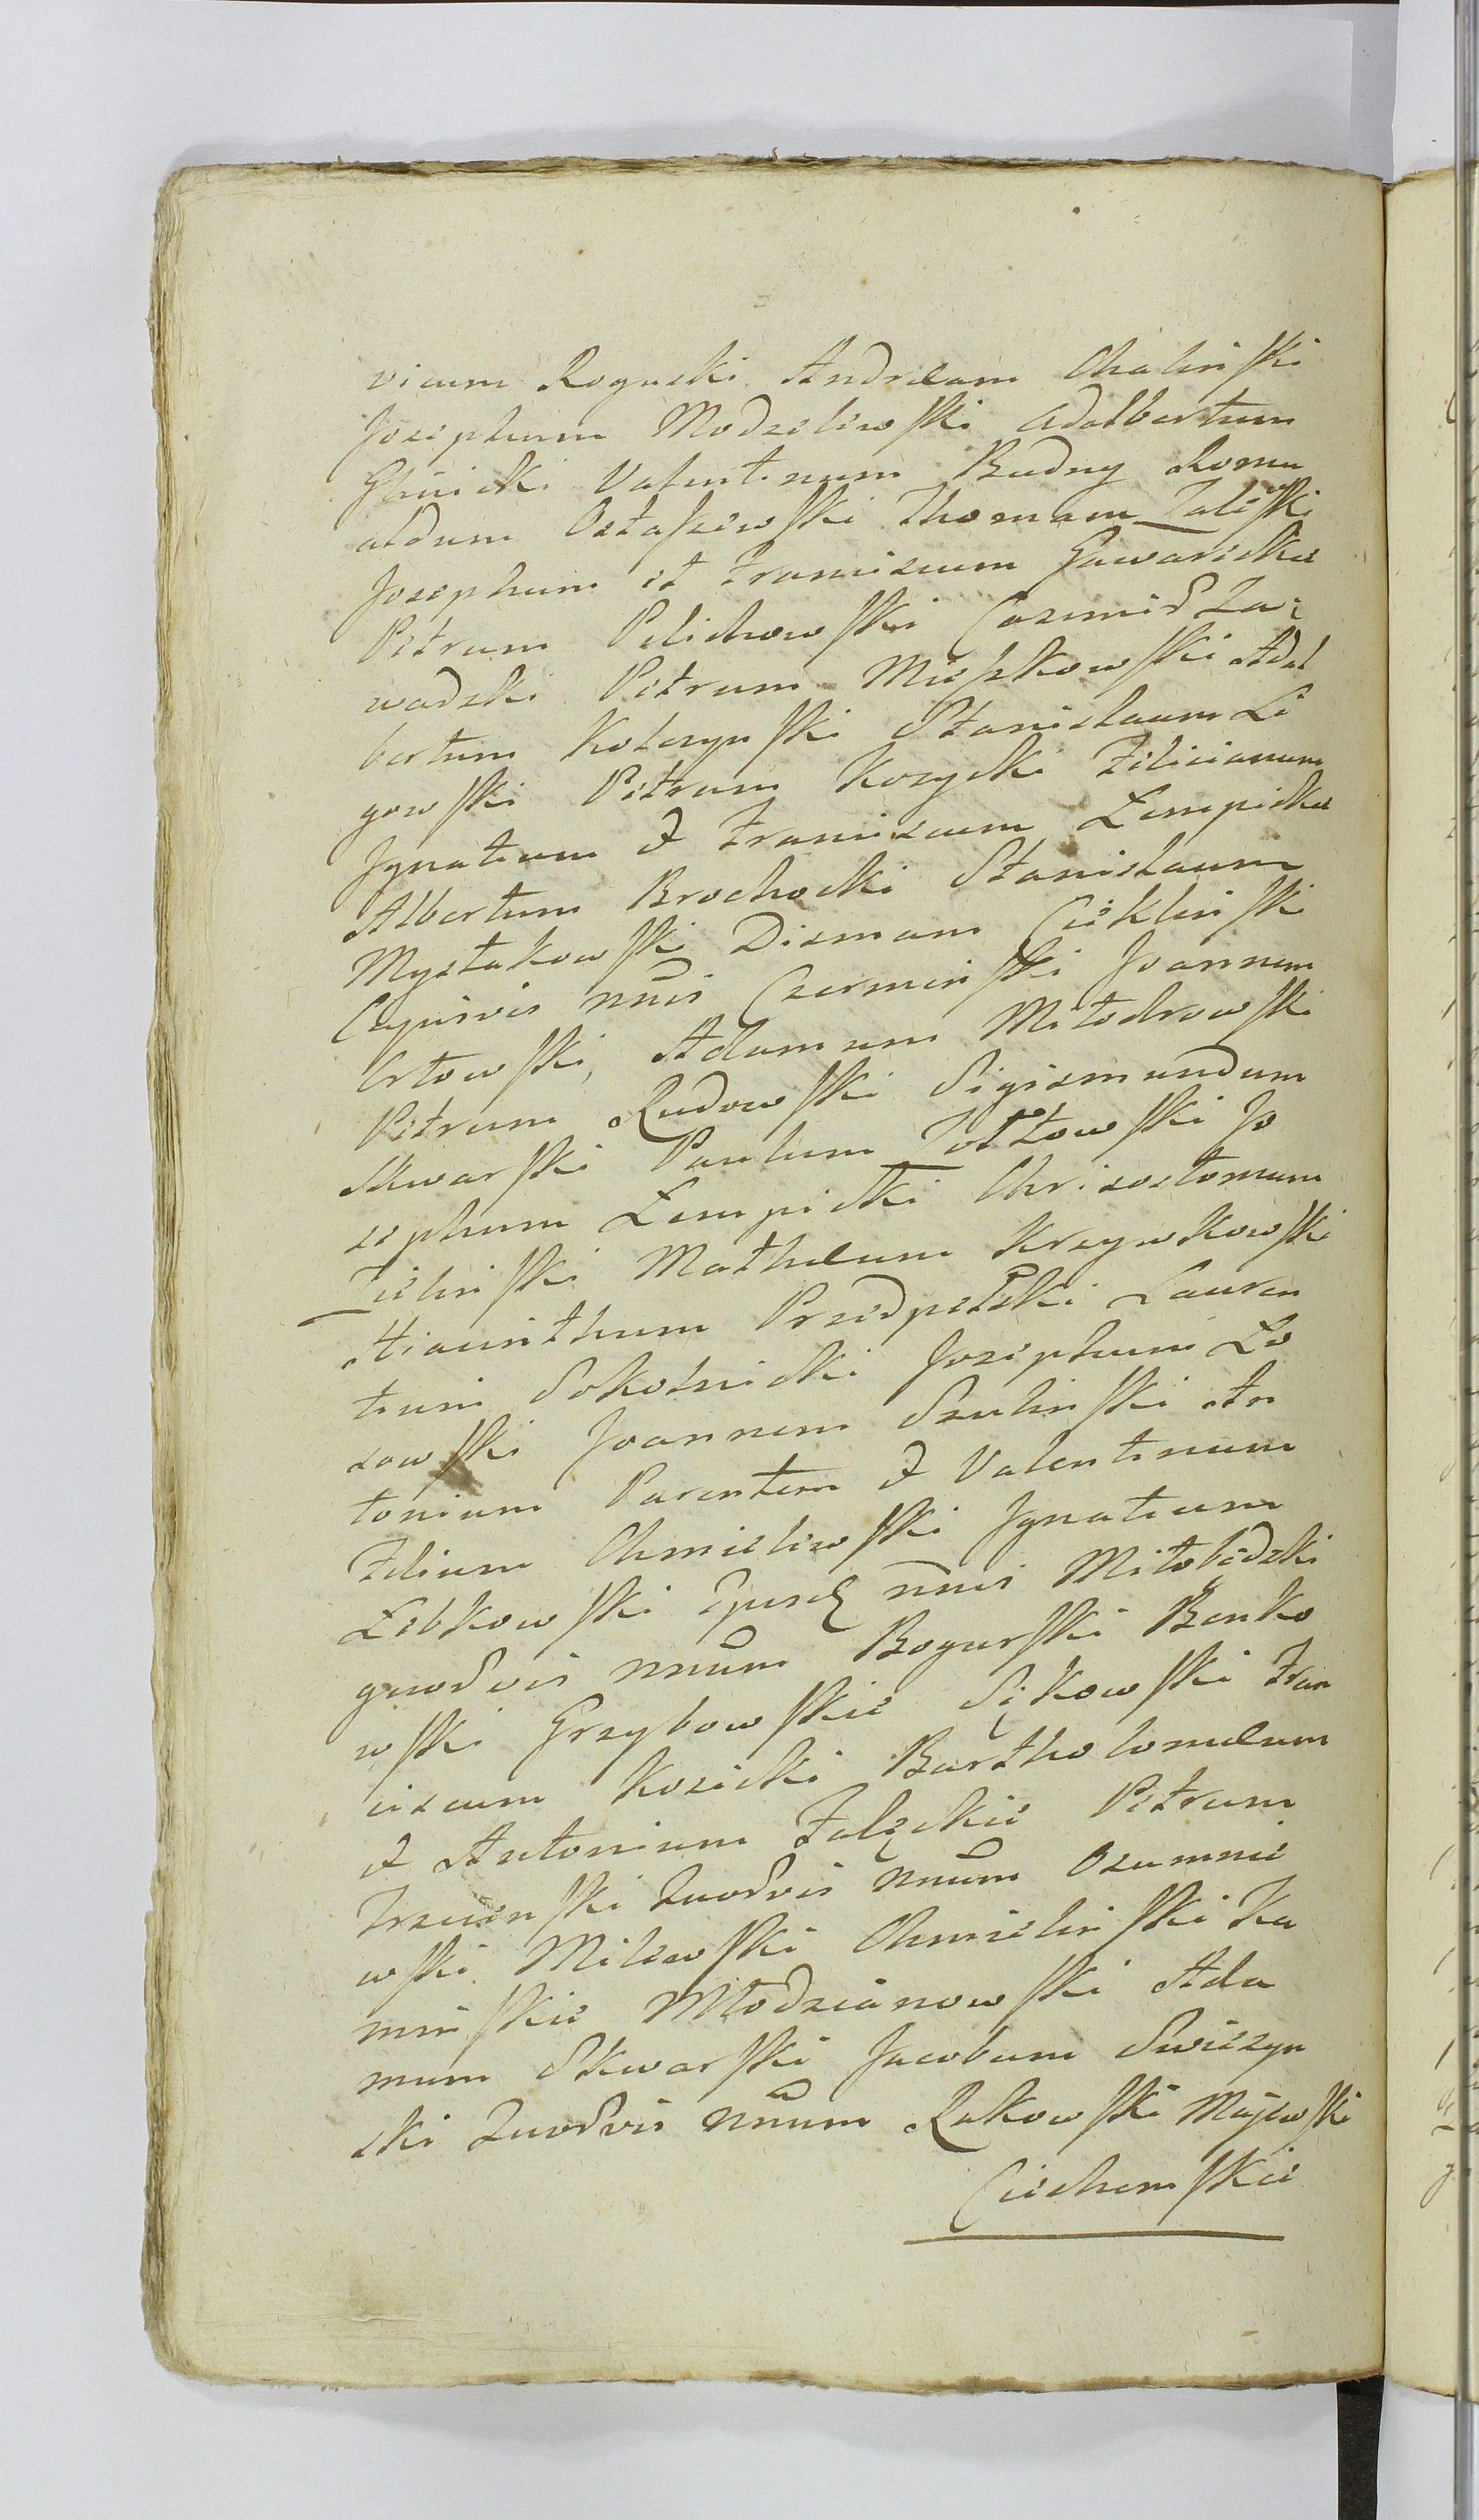 vicum Roguski Andream Chalinski
Josephum Modzelewski Adalbertum
Glinicki Valentinum Budny Romu
aldum Ostaszewski Thomam Zaleski
Josephum et Franciscum Gawareckie
Petrum Pelichowski Casimir Za:
wadzki Petrum Mieszkowski Adal
bertum Kolczynski Stanislaum Li
gowski Petrum Kozycki Felicianum
Ignatium & Franciscum Lempickie
Albertum Brochocki Stanislaum
Mystakowski Dismam Cieklinski
Cujusvis nnis Czerminski Joannem
Orłowski, Adamum Miłodrowski
Petrum Rudowski Sigismundum
Skwarski Paulum Żółtowski Jo
sephum Lempicki Chrisostomum
Zielinski Matheum Krzywkowski
Hiacinthum Przedpełski Lauren
tium Sokolnicki Josephum Lo
sowski Joannem Szulinski An
tonium Parentem & Valentinum
Filium Chmielewski Ignatium
Lebkowski nnis Miłobędzki
quodvis nnum Bogurski Bonko
wski Grzybowskie Sękowski Fran
ciscum Kosicki Bartholomeum
& Antonium Załęckie Petrum
Trzcinski Quodvis nnum Osumnie
wski Milewski Chmielinski Ka
minskie Młodzianowski Ada
mum Skwarski Jacobum Swiezyn
ski Quodvis nnum Rakowski Majewski
Ciechomskie